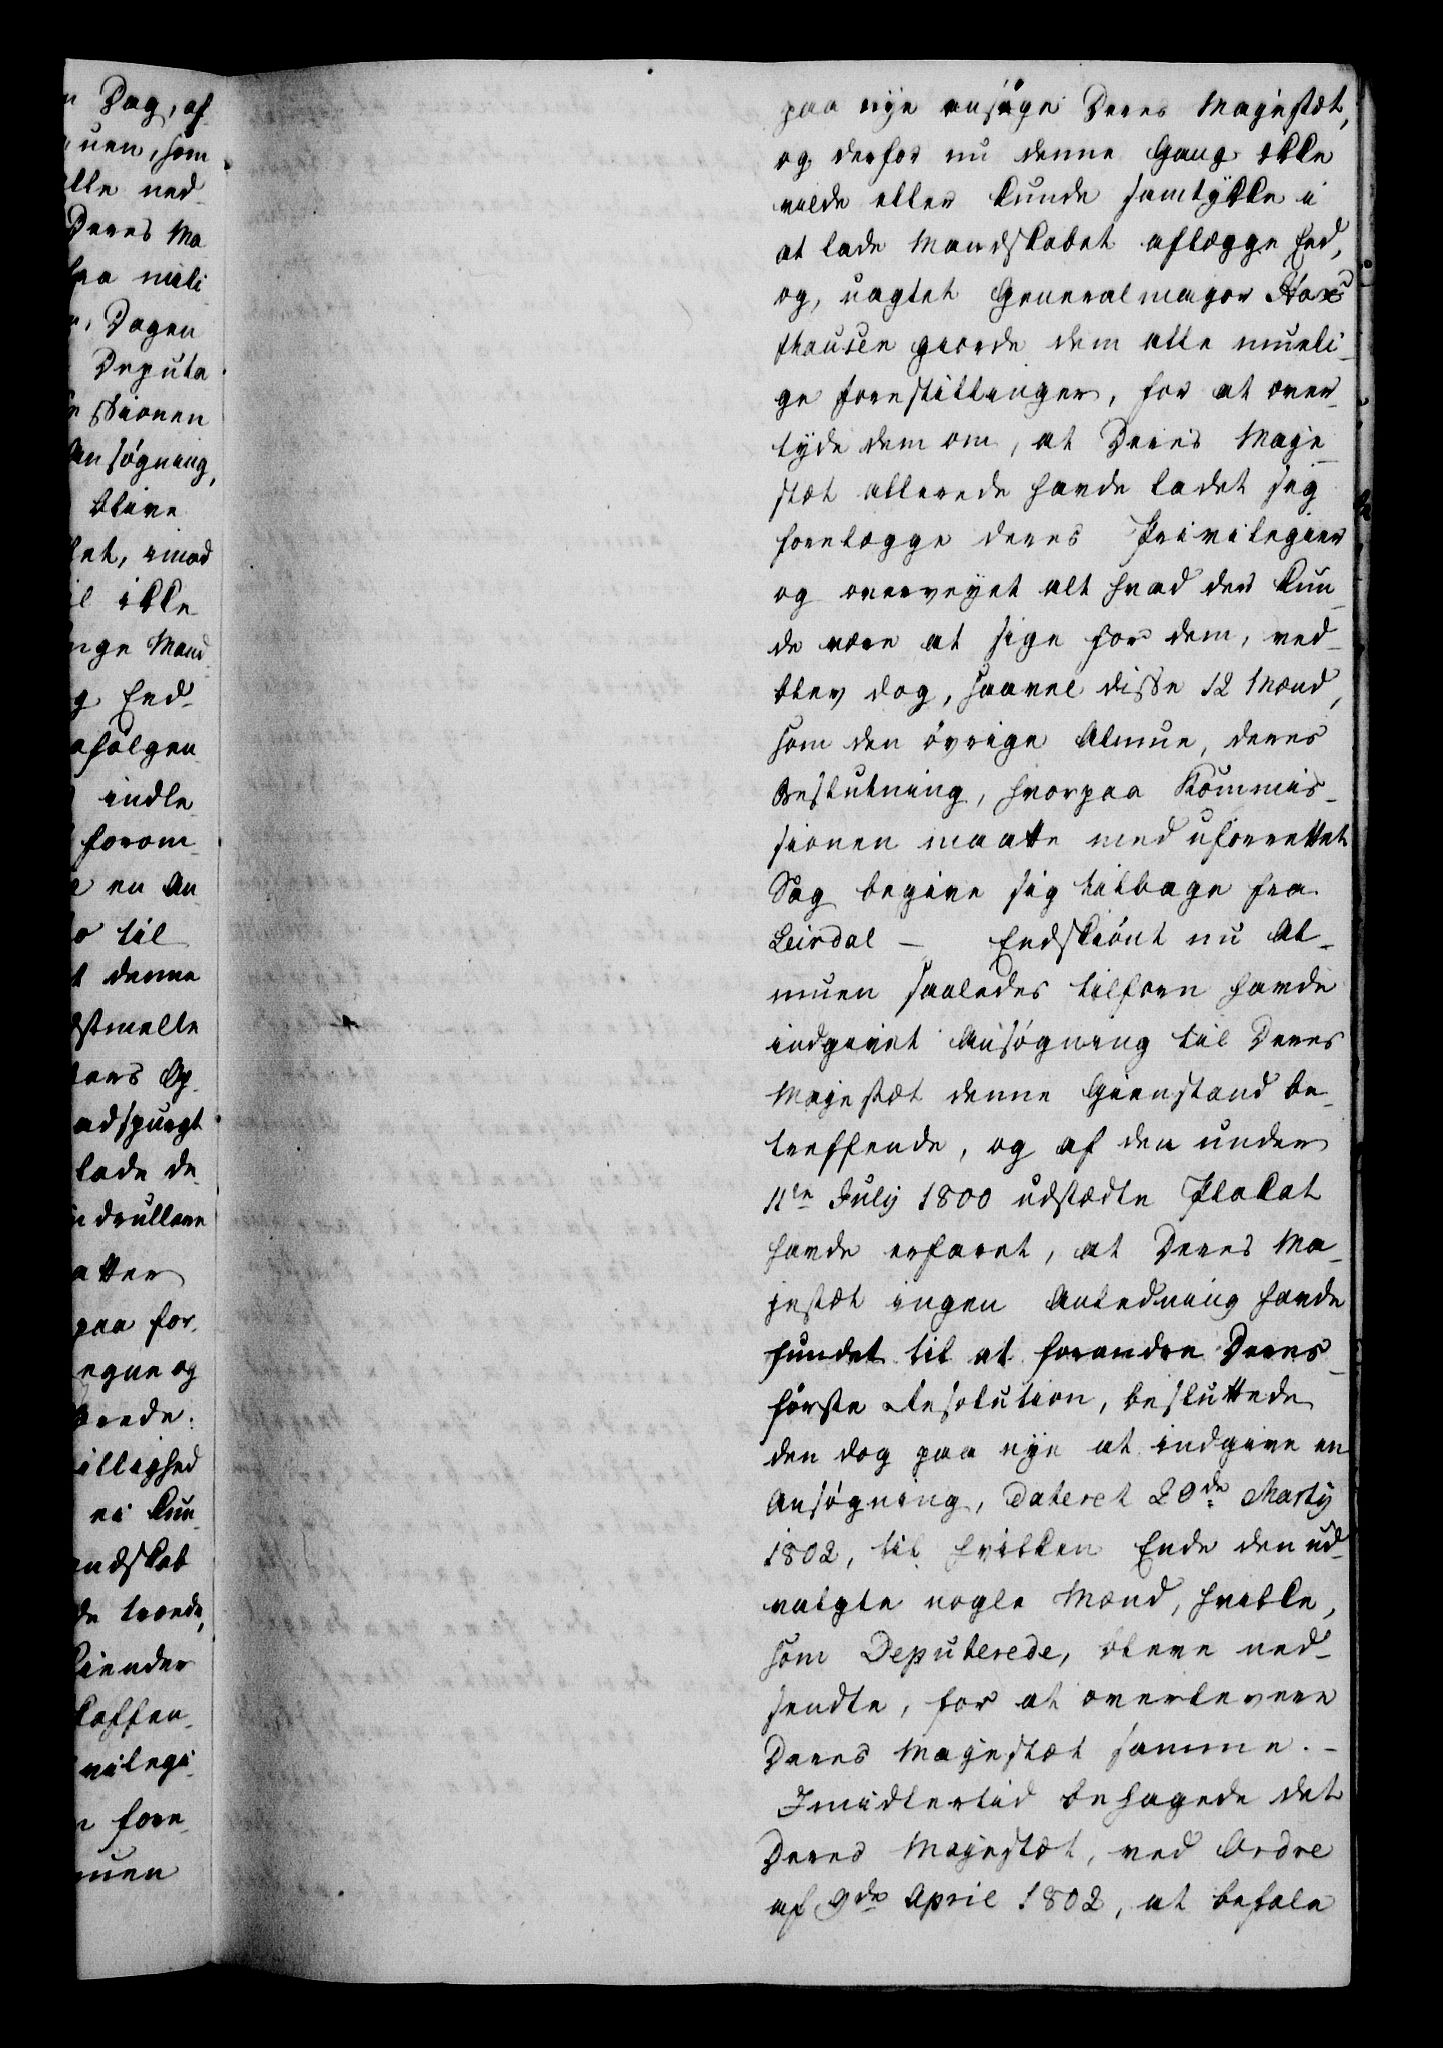 n Dag, af
uen, som
lle ned-
Deres Ma
fra mili
, Dagen
Deputa
ssionen
Ansøgning,
blive
et, imod
il ikke
nge Mand-
g End-
afølgen
indle-
forom-
e en An-
til
t denne
stmelte
tors Op-
adspurgt
lade de-
drullere
atter
paa for-
egne og
rede:
illighed
ei kun-
andskab
de træde,
kiender
skaffen-
vilegi-
n fore-
muen
paa nye ansøge Deres Majestæt,
og derfor nu denne Gang ikke
vilde eller kunde samtykke i
at lade Mandskabet aflægge Eed,
og, uagtet Generalmajor Hax-
thausen giorde dem alle mueli-
ge forestillinger, for at over-
tyde dem om, at Deres Maje-
stæt allerede havde ladet sig
forelægge deres Privilegier
og overveyet alt hvad der kun-
de være at sige for dem, ved-
blev dog, saavel disse 12 Mænd,
som den øvrige Almue, deres
Beslutning, hvorpaa Kommis-
sionen maatte med uforrettet
Sag begive sig tilbage fra
Leirdal – Endskiønt nu Al-
muen saaledes tilforn havde
indgivet Ansøgning til Deres
Majestæt denne Gienstand be-
treffende, og af den under
11te July 1800 udstædte Plakat
havde erfaret, at Deres Ma-
jestæt ingen Anledning havde
fundet til at forandre Deres
første Resolution, besluttede
den dog paa nye at indgive en
Ansøgning, dateret 20de Marty
1802, til hvilken Ende den ud-
valgte nogle Mænd, hvilke,
som Deputerede, bleve ned-
sendte, for at overlevere
Deres Majestæt samme. –
Imidlertid behagede det
Deres Majestæt, ved Ordre
af 9de April 1802, at befale